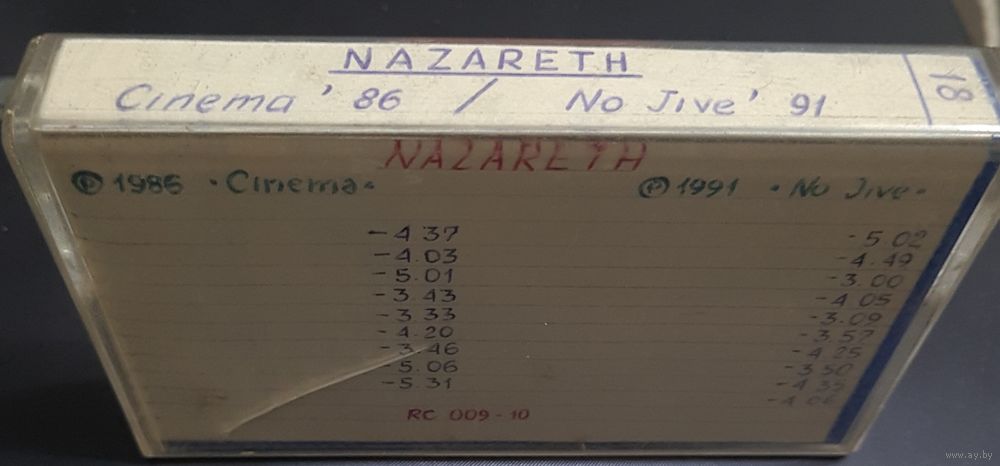 NAZARETH
Cinema '86 / No Jive' 91
18
NAZARETH
Ⓟ 1986 • Cinema •
Ⓟ 1991 • No Jive •
- 4 37
- 4.03
- 5.01
- 3 43
- 3 33
- 4.20
- 3.46
- 5.06
- 5.31
RC 009 - 10
- 5.02
- 4.49
- 3.00
- 4 05
- 3.09
- 3.57
- 4 25
- 3 50
- 4 35
www.ay.by